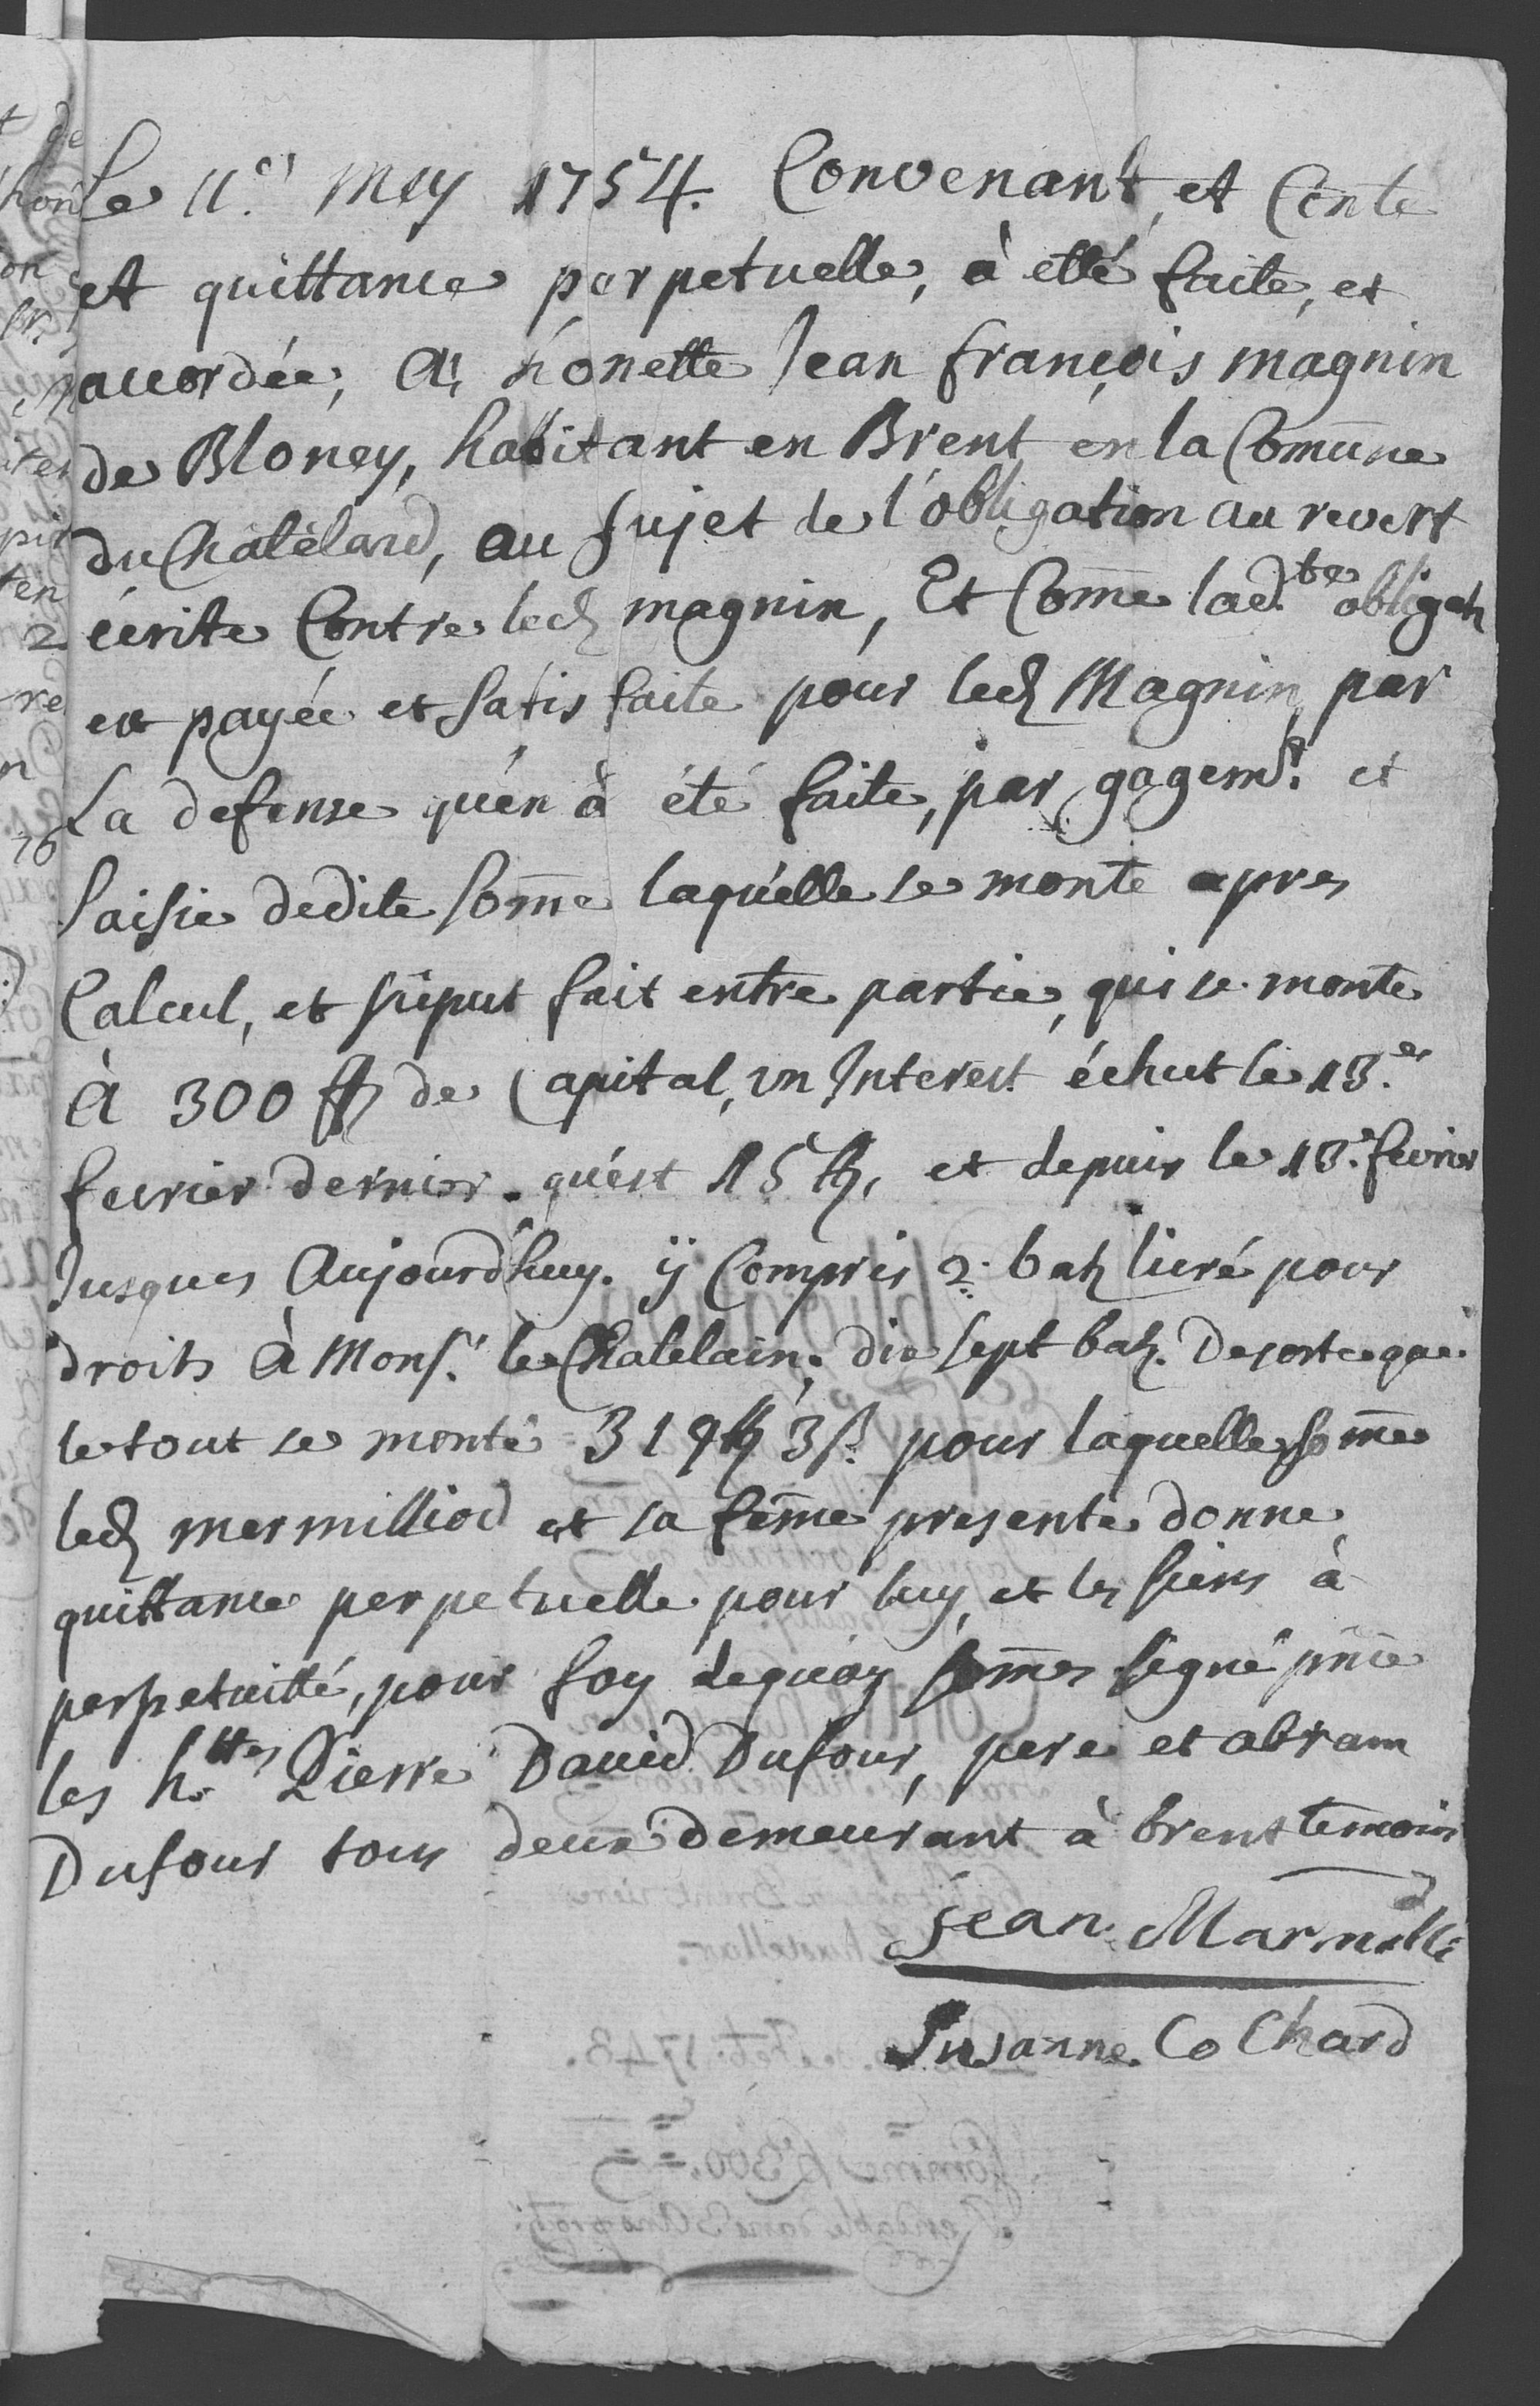 Le 11.e Mey 1754. Convenant, et Conte
et quittance perpetuelle, à etté faite, et
accordée, A, hónette Jean françois magnin
de Bloney, habitant en Brent en la Comūne
du Chatelard, au sujet de l'obligation au revert
écrite Contre led magnin, Et Come lad.te obligatn
est payée et satisfaite pour led Magnin, par
La defense qu'en à été faite, par gagemt. et
Saisie dedite some laquelle se monte apres
Calcul, et suput fait entre partie, qui se monte
à 300 ff de Capital, un Interest échut le 13.e
fevrier dernier. qu'est 15 ff, et depuis le 13.e fevrier
Jusques Aujourd'huy. ÿ Compris 2. batz livré pour
droits à Monsr. le Chatelain, dix sept batz. De sorte que
le tout se monte 319 ff 3 s. pour laquelle some
led mermilliod et sa feme presente donne
quittance perpetuelle pour luy, et les siens à
perpetuitté, pour foy dequoy somes signé
les h.ttes Pierre David Dufour, pere et abram
Dufour tous deux demeurant à brent temoins
Jean Marmilli
Susanne Co Chard